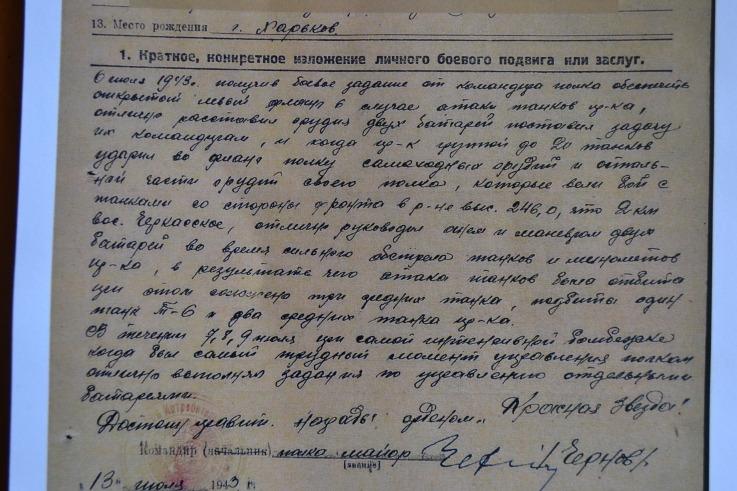 13. Место рождения г. Харьков.
1. Краткое, конкретное изложение личного боевого подвига или заслуг.
6 июля 1943г. получив боевое задание от командира полка обеспечить
открытой левый фланг в случае атаки танков пр-ка,
отлично расставил орудия двух батарей поставил задачу
их командирам, и когда пр-к группой до 20 танков
ударил во фланг полку самоходных орудий и осталь-
ной части орудий своего полка, которые вели бой с
танками со стороны фронта в р-не выс. 246,0, что 2 км
вос. Черкасское, отлично руководил огнем и маневром двух
батарей во время сильного обстрела танков и минометов
пр-ка, в результате чего атака танков была отбита
при этом сожжено три средних танка, подбиты один
танк Т-6 и два средних танка пр-ка.
В течении 7, 8, 9 июля при самой интенсивной бомбежке
когда был самый трудный момент управления полком
отлично выполнял задания по управлению отдельными
батареями.
Достоин правит. награды орденом „Красная Звезда".
Командир (начальник) полка майор /Чернов/
(звание)
"13" июля 1943 г.